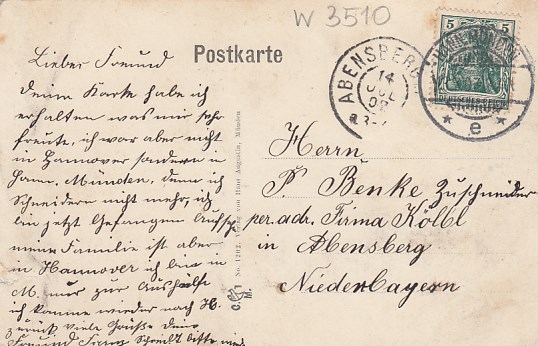 W 3510
Postkarte
5 5
ABENSBERG
14 JUL
HANN. MÜNDEN
* e *
Lieber Freund
Deine Karte habe ich
erhalten was mir sehr
freute, ich war aber nicht
in Hannover sondern in
Hann. Münden, denn ich
Schneidern nicht mehr, ich
bin jetzt Gefangen Aufseh
meine Familie ist aber
in Hannover ich bin in
M. nur zur Aushülfe
ich komme wieder nach H.
zurück viele Grüße dein
Freund Schreibe bitte
Herrn
P. Benke Zuschneider
per. adr. Firma Kölbl
in Abensberg
Niederbayern
No. 1212. Verlag von Hans Augustin, München
C. M.